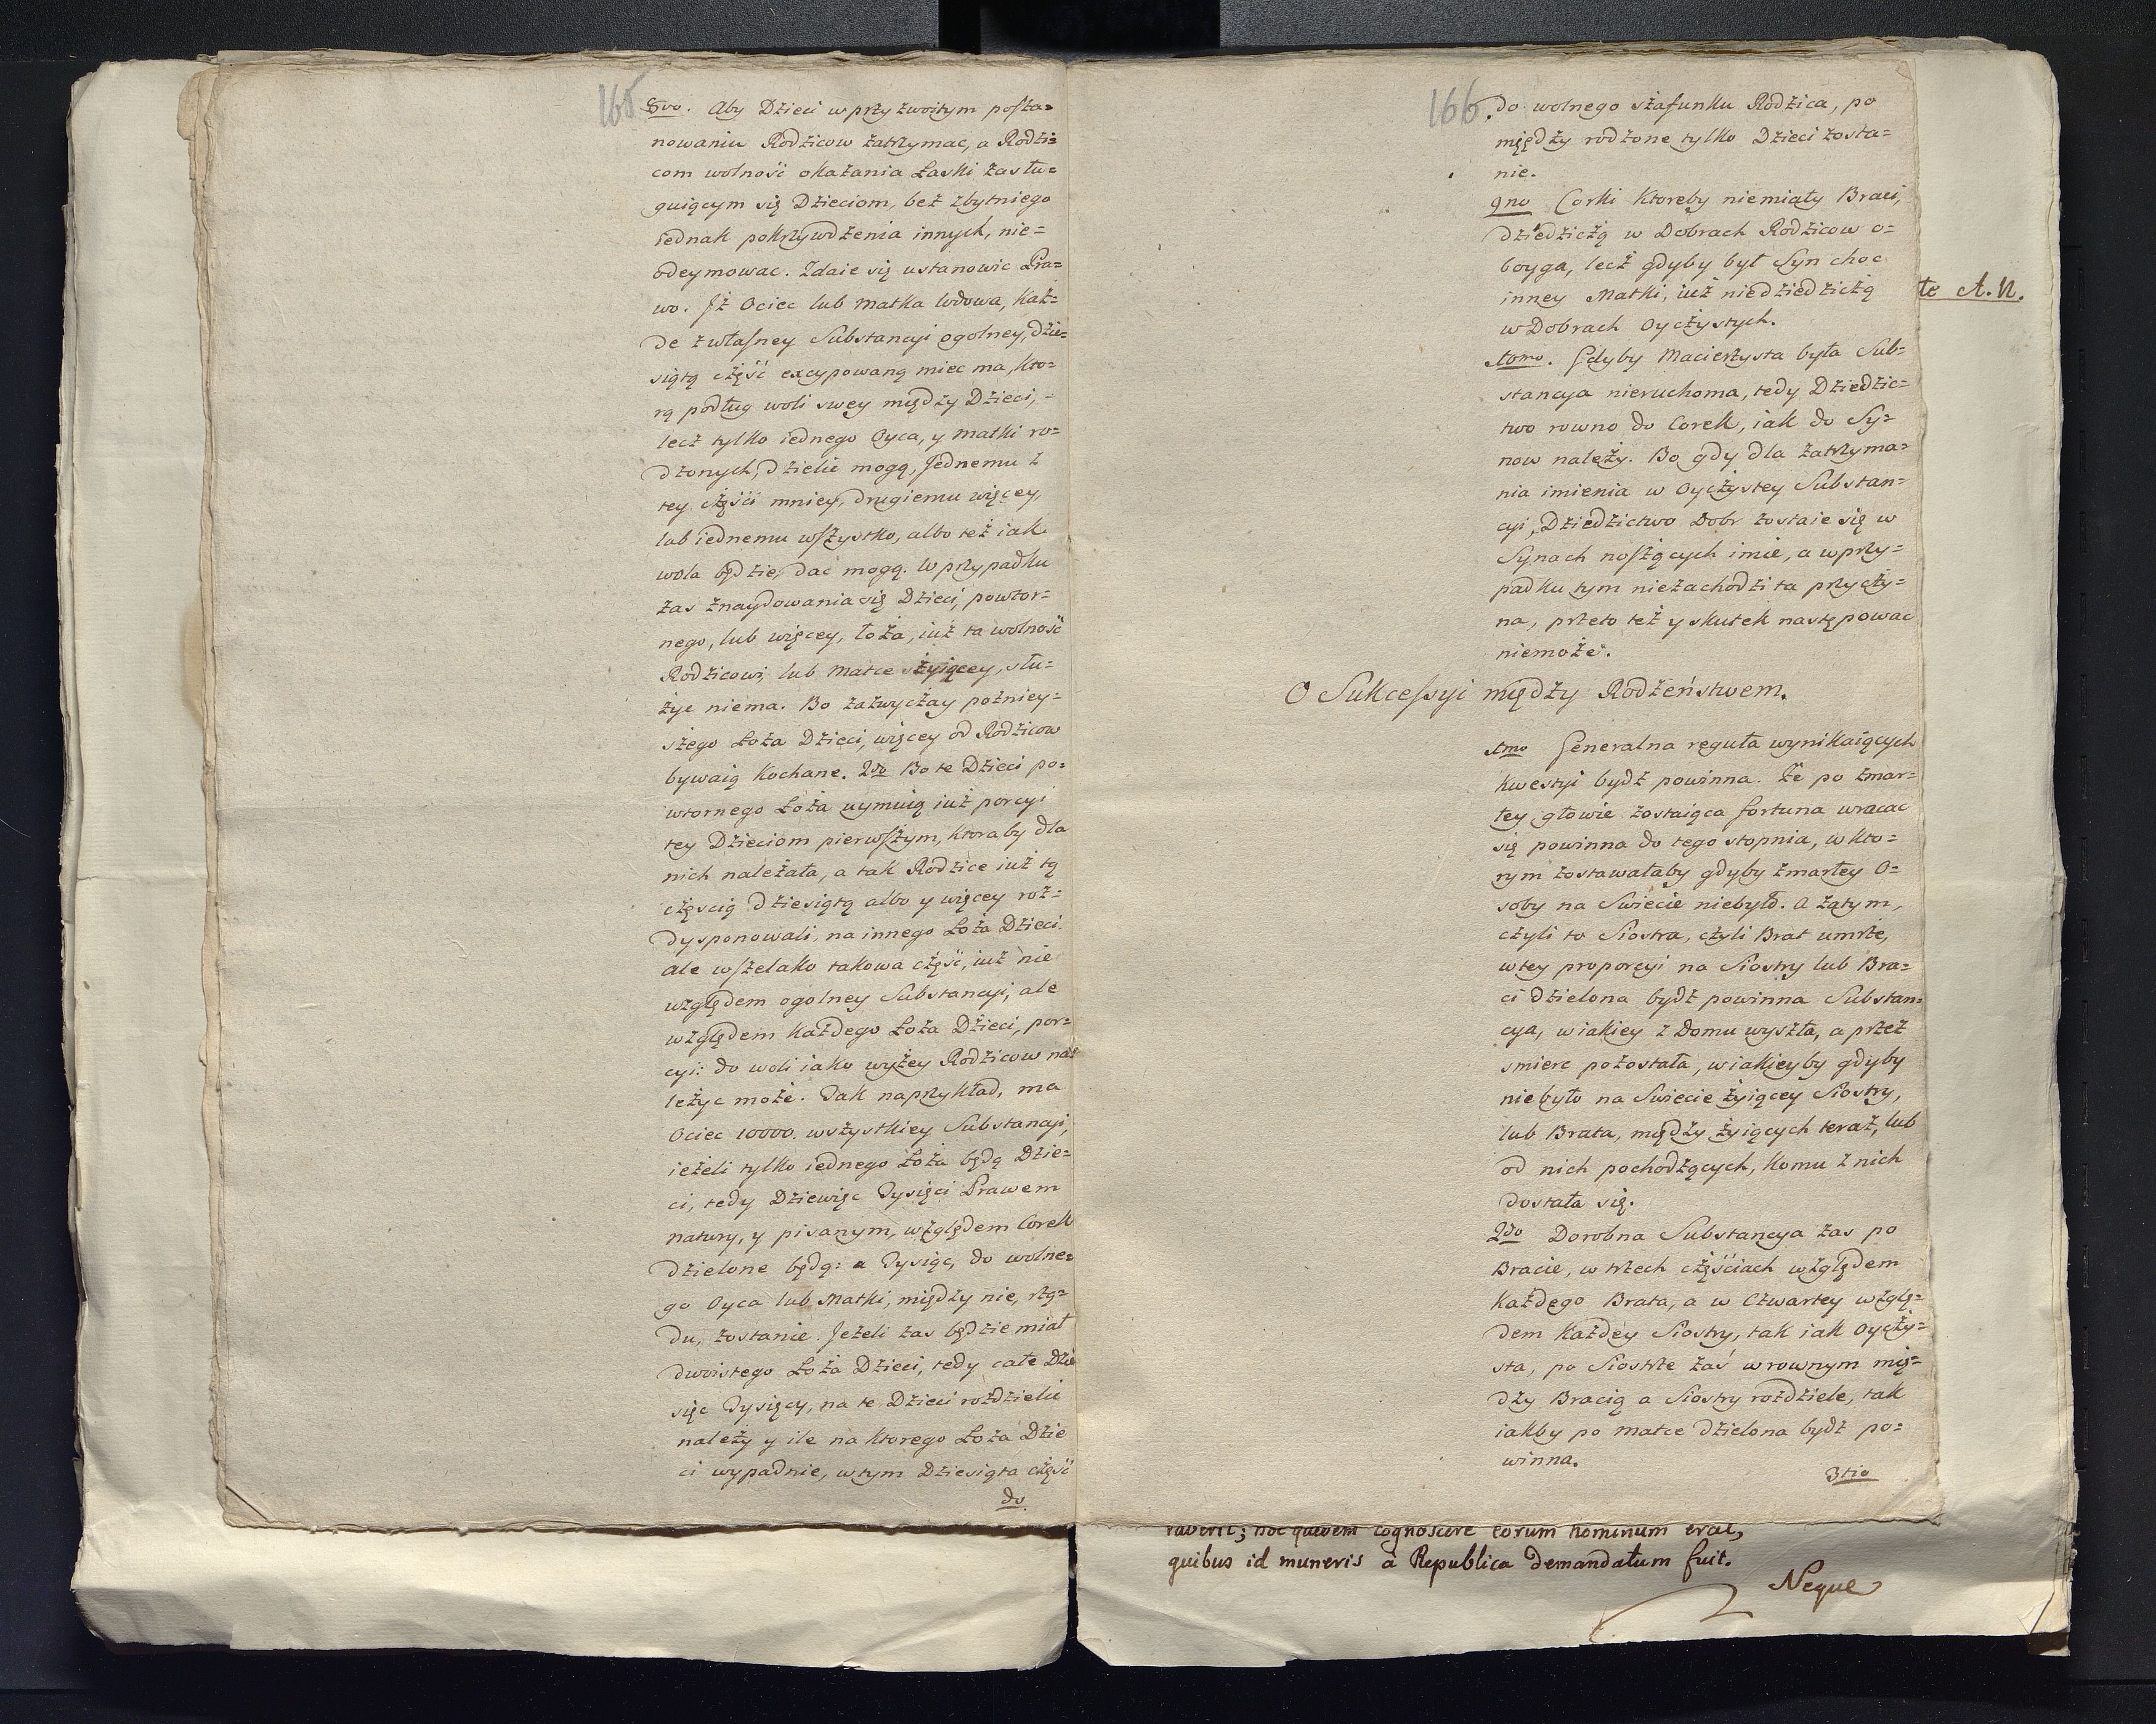 165
8vo. Aby Dzieci w przyzwoitym posta=
nowaniu Rodzicow zatrzymac, a Rodzi=
com wolność okazania Łaski zasłu=
guiącym się Dzieciom, bez zbytniego
iednak pokrzywdzenia innych, nie=
odeymowac. Zdaie się ustanowic Pra=
wo. Jż Ociec lub Matka wdowa, Kaz=
de z własney Substancyi ogolney, dzie=
siątą część excypowaną miec ma, Kto=
rą podług woli swey między Dzieci, -
lecz tylko iednego Oyca, y Matki ro=
dzonych, dzielic mogą, Jednemu z
tey częśći mniey, drugiemu więcey,
lub iednemu wszystko, albo też iak
wola będzie, dac mogą. W przypadku
zas znaydowania się Dzieci, powtor=
nego, lub więcey, łoża, iuż ta wolność
Rodzicowi, lub Matce żyiącey, słu=
życ niema. Bo zazwyczay pozniey=
szego Łoża Dzieci, więcey od Rodzicow
bywaią Kochane. 2do Bo te Dzieci po=
wtornego Łoża uymuią iuż porcyi
tey Dzieciom pierwszym, Ktoraby dla
nich należała, a tak Rodzice iuż tą
częscią dziesiątą albo y więcey roz=
dysponowali, na innego Łoża Dzieci.
ale wszelako takowa część, iuż nie
względem ogolney Substancyi, ale
względem Każdego Łoża Dzieci, por=
cyi: do woli iako wyżey Rodzicow na=
leżyc może. Tak naprzykład, ma
Ociec 10000. wszystkiey Substancyi,
ieżeli tylko iednego Łoża będą Dzie=
ci, tedy Dziewięc Tysięci Prawem
natury, y pisanym, względem Corek
dzielone będą: a Tysiąc, do wolne=
go Oyca lub Matki, między nie, rzą=
du, zostanie. Jeżeli zas będzie miał
dwoistego Łoża Dzieci, tedy całe Dzie
sięc Tysięcy, na te Dzieci rozdzielic
należy y ile na Ktorego Łoża Dzie
ci wypadnie, w tym Dziesiąta część
do
166.
do wolnego szafunku Rodzica, po
między rodzone tylko Dzieci zosta=
nie.
9no Corki Ktoreby niemiały Braci,
dziedziczą w Dobrach Rodzicow o=
boyga, lecz gdyby był Syn choc
inney Matki, iuż niedziedziczą
w Dobrach Oyczystych.
te A. N.
10mo. Gdyby Macierzysta była Sub=
stancya nieruchoma, tedy Dziedzic=
two rowno do Corek, iak do Sy=
now należy. Bo gdy dla zatrzyma=
nia imienia w Oyczystey Substan=
cyi, Dziedzictwo Dobr zostaie się w
Synach noszących imie, a w przy=
padku tym niezachodzi ta przyczy=
na, przeto też y skutek następowac
niemoże.
O Sukcessyi między Rodzeństwem.
1mo Generalna reguła wynikaiących
Kwestyi bydz powinna. Że po zmar=
łey głowie zostaiąca fortuna wracac
się powinna do tego stopnia, w Kto=
rym zostawałaby gdyby zmarłey O=
soby na Swiecie niebyło. A zatym,
czyli to Siostra, czyli Brat umrze,
w tey proporcyi na Siostry lub Bra=
ci dzielona bydz powinna Substan=
cya, w iakiey z Domu wyszła, a przez
smierc pozostała, w iakieyby gdyby
niebyło na Swiecie żyiącey Siostry,
lub Brata, między żyiących teraz, lub
od nich pochodzących, Komu z nich
dostała się.
2do Dorobna Substancya zas po
Bracie, w trzech częściach względem
Każdego Brata, a w Czwartey wzglę=
dem Każdey Siostry, tak iak Oyczy=
sta, po Siostrze zaś w rownym mię=
dzy Bracią a Siostry rozdziele, tak
iakby po Matce dzielona bydz po=
winna.
3tio
quidem cognoscere eorum hominum erat,
quibus id muneris à Republica demandatum fuit.
Neque